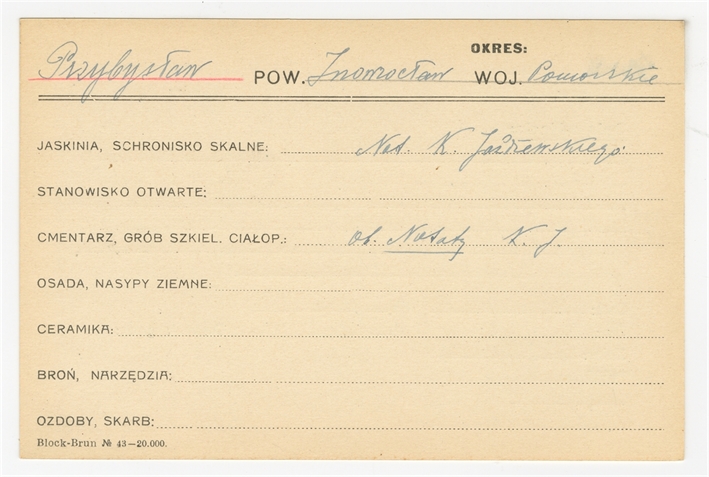 OKRES:
Przybysław POW. Inowrocław WOJ. Pomorskie
JASKINIA, SCHRONISKO SKALNE: Not. K. Jażdżewskiego.
STANOWISKO OTWARTE:
CMENTARZ, GRÓB SZKIEL. CIAŁOP.: ob. Notaty K. J.
OSADA, NASYPY ZIEMNE:
CERAMIKA:
BROŃ, NARZĘDZIA:
OZDOBY, SKARB:
Block-Brun № 43—20.000.